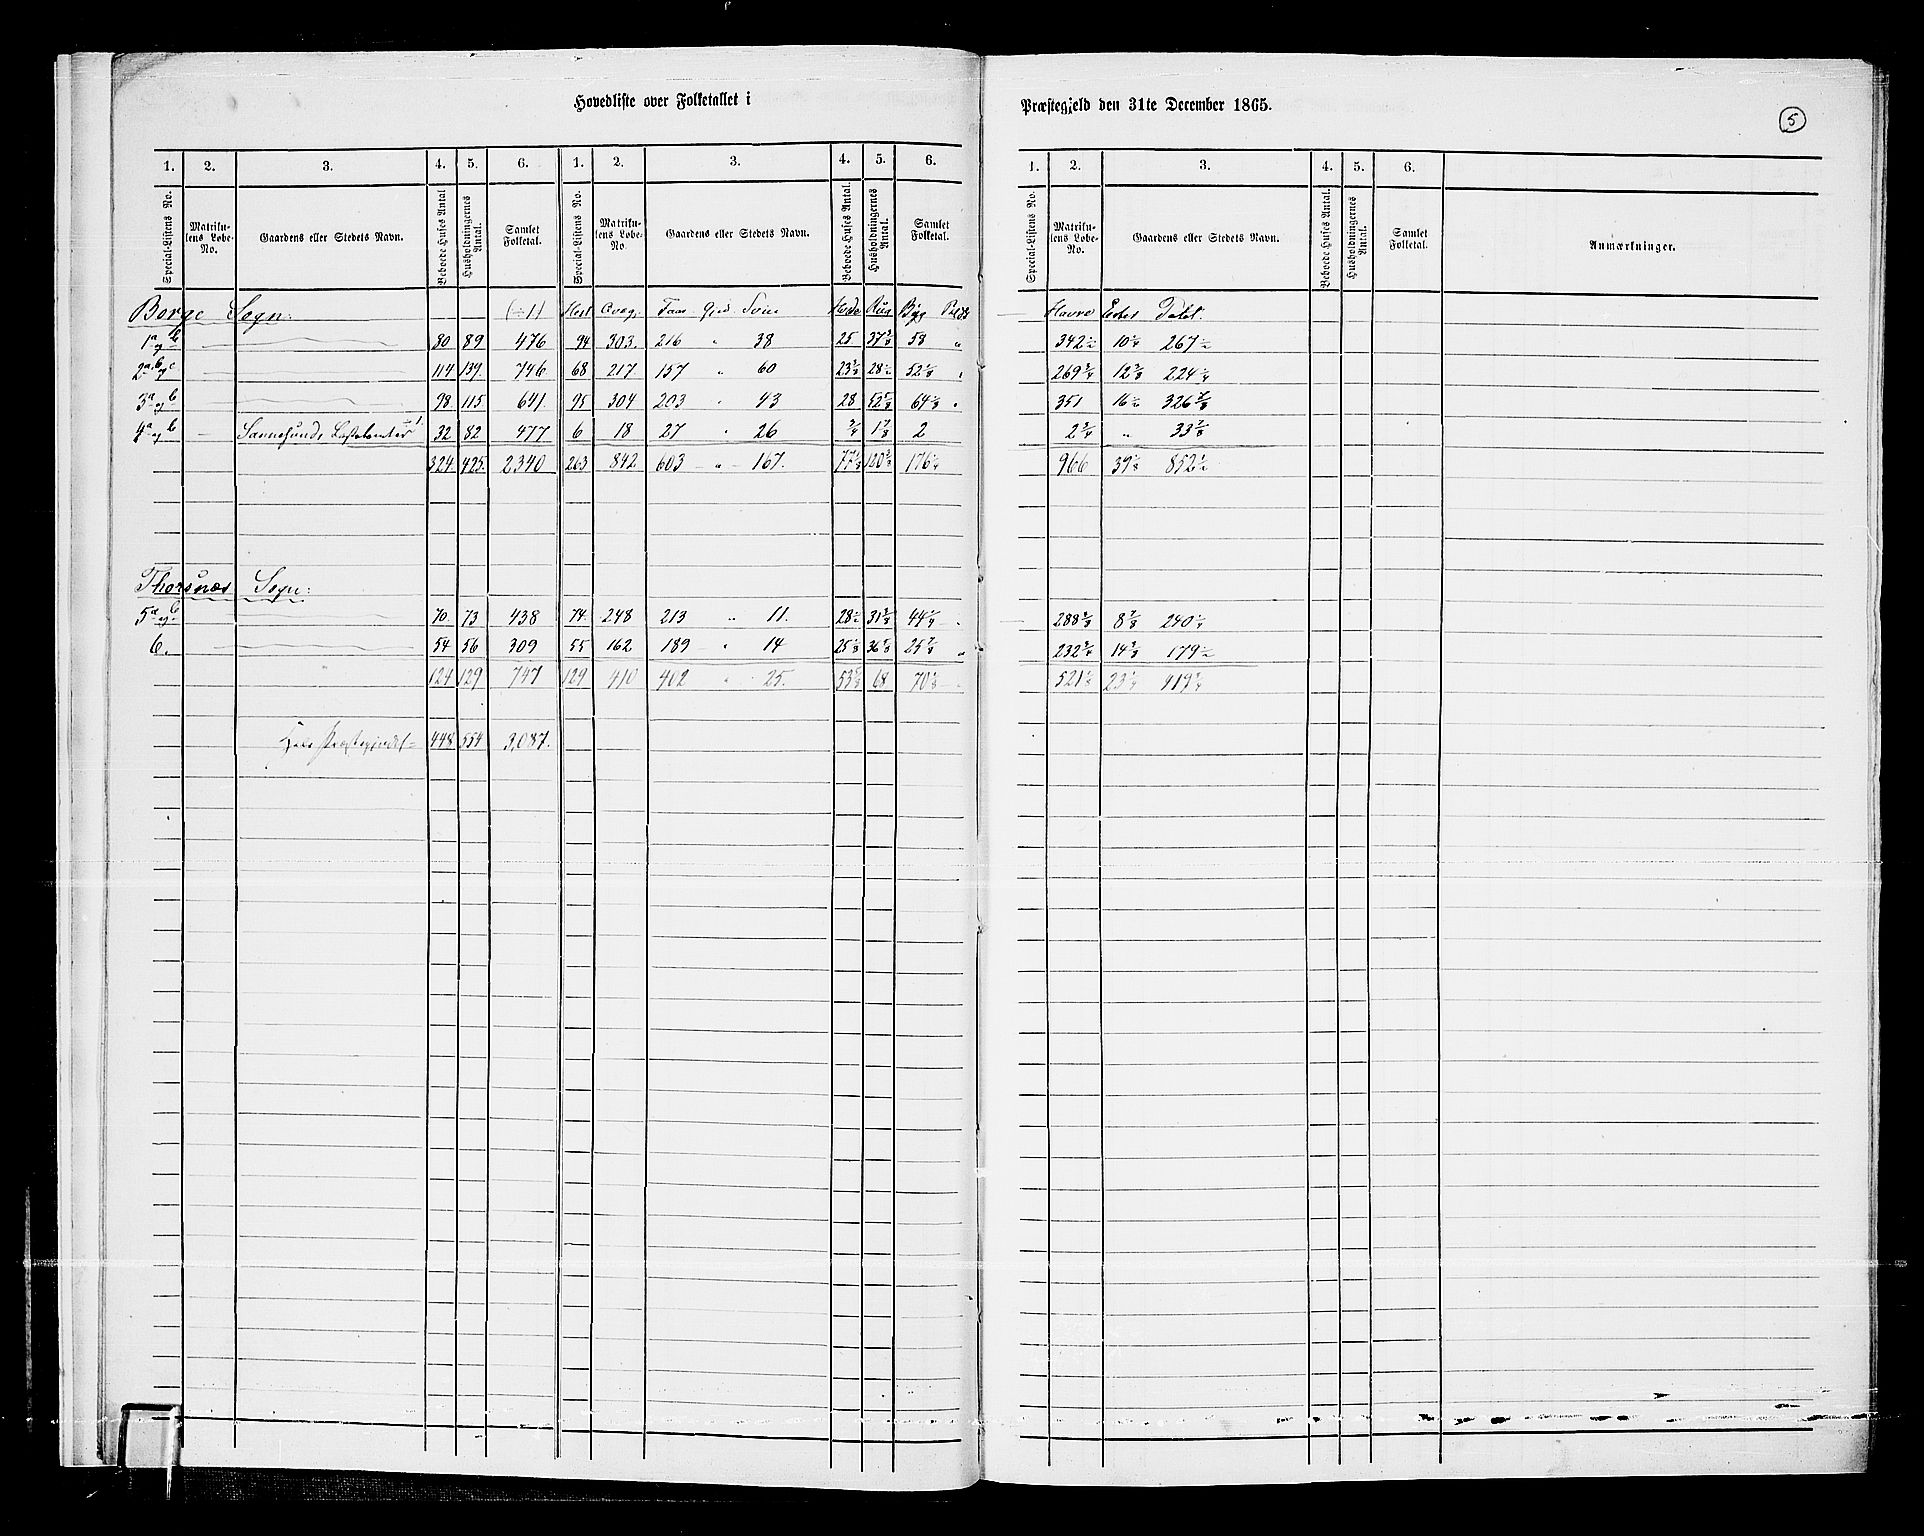 Hovedliste over Folketallet i Præstegjeld den 31te December 1865.
5
1. 2. 3. 4. 5. 6. 1. 2. 3. 4. 5. 6. 1. 2. 3. 4. 5. 6.
Special-Listens No. Matrikulens Løbe-No. Gaardens eller Stedets Navn. Beboede Huses Antal Husholdningernes Antal. Samlet Folketal. Special-Listens No. Matrikulens Løbe-No. Gaardens eller Stedets Navn. Beboede Huses Antal. Husholdningernes Antal. Samlet Folketal. Special-Listens No. Matrikulens Løbe-No. Gaardens eller Stedets Navn. Beboede Huses Antal. Husholdningernes Antal. Samlet Folketal. Anmærkninger.
Borge Sogn: (÷1) Hest Qvæg Faar Gjed Sviin Hvede Rug Byg Havre Erter Potet.
1 a og b 80 89 476 94 303. 216 " 38 25 58 " 342 10 267
2 a, b og c 114 139. 746 68 217 157 " 60 28 52 " 269 12 224
3 a og b 98 115 641. 95 304 203 " 43 28 52 64 " 351 16 326
4 a og b Sannesund, Ladested 32 82 477 6 18 27 " 26 1 2 2 " 33
324 425. 2340 263 842 603 " 167. 77 176 966 39 852
Thorsnæs Sogn:
5 a og b 70. 73 438 74. 248 213 " 11. 28 31 44 288 8 240
6. 54 56 309 55 162 189 " 14 25 36 25 " 232 14 179
124 129 747 129 410 402 " 25. 53 68 70 521 23 419
Hele Præstegjeldet = 448 554 3,087.